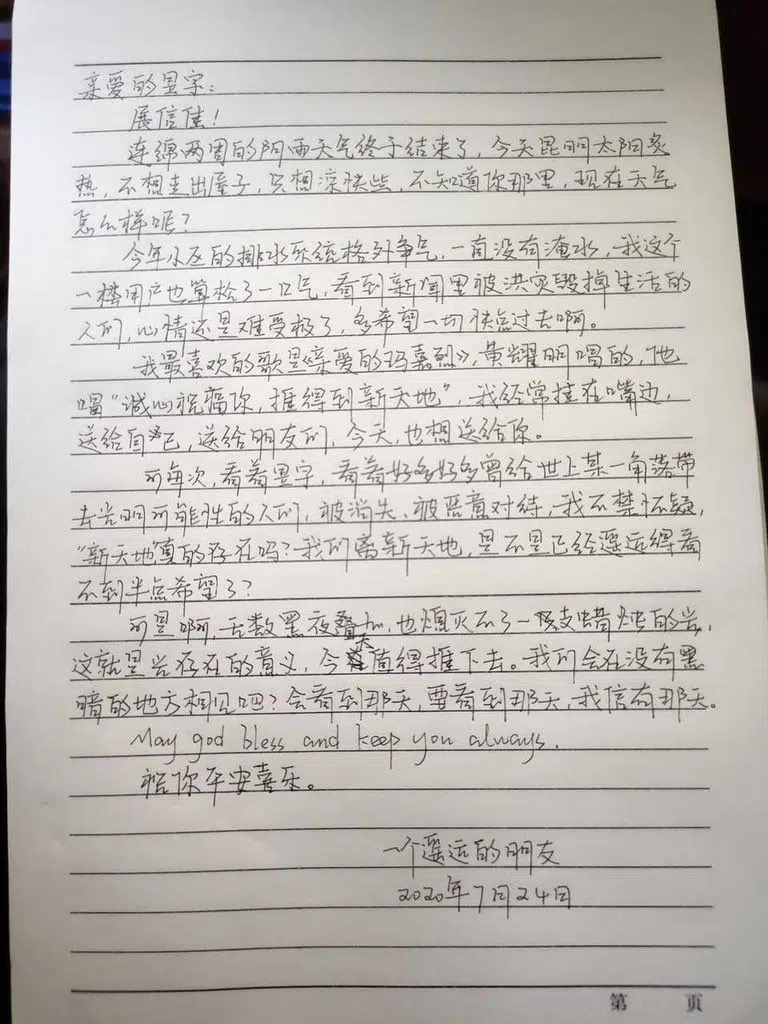 亲爱的昱宇：
展信佳！
连绵两周的阴雨天气终于结束了，今天昆明太阳炙
热，不想走出屋子，只想凉快些，不知道你那里，现在天气
怎么样呢？
今年小区的排水系统格外争气，一直没有淹水，我这个
一楼用户也算松了一口气，看到新闻里被洪灾毁掉生活的
人们，心情还是难受极了，多希望一切快点过去啊。
我最喜欢的歌是《亲爱的玛嘉烈》，黄耀明唱的，他
唱“诚心祝福你，捱得到新天地”，我经常挂在嘴边，
送给自己，送给朋友们，今天，也想送给你。
可每次，看着昱宇，看着好多好多曾给世上某一角落带
去光明可能性的人们，被消失、被恶意对待，我不禁怀疑，
“新天地”真的存在吗？我们离新天地，是不是已经遥远得看
不到半点希望了？
可是啊，无数黑夜叠加，也熄灭不了一支蜡烛的光，
这就是光存在的意义，今天值得捱下去。我们会在没有黑
暗的地方相见吧？会看到那天，要看到那天，我信有那天。
May god bless and keep you always.
祝你平安喜乐。
一个遥远的朋友
2020年7月24日
第 页